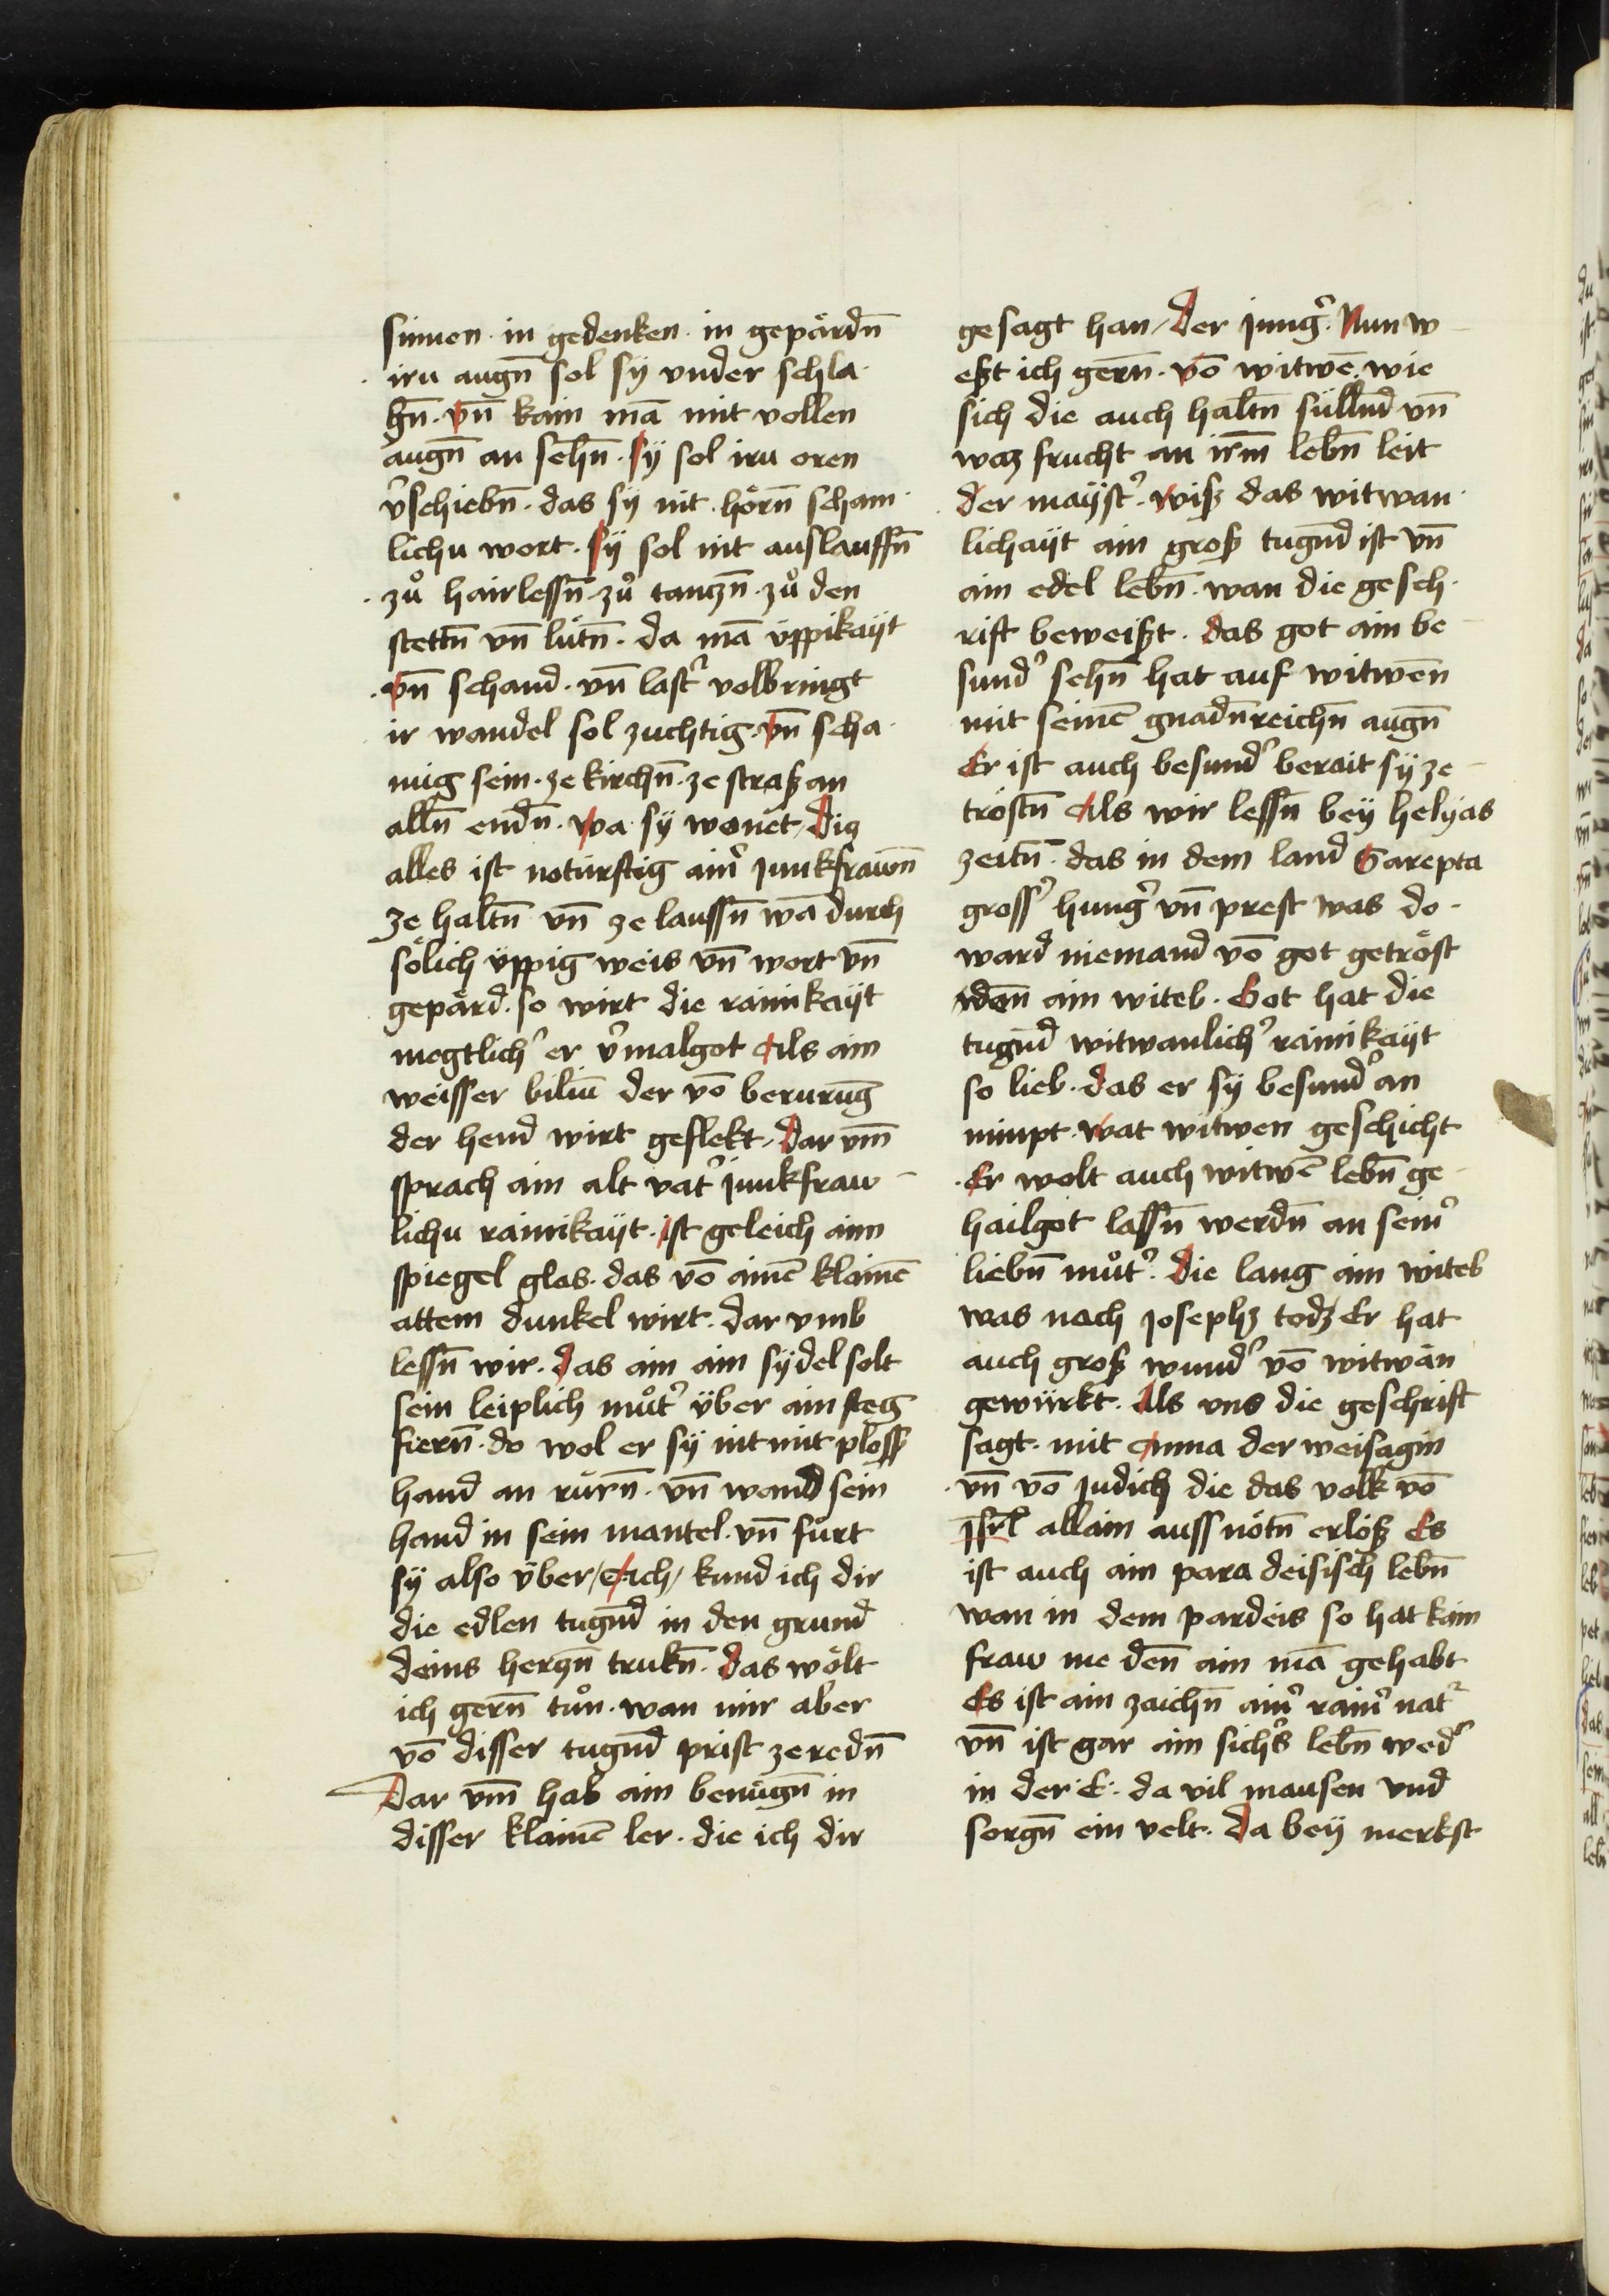 sinnen · in gedenken · in gepärdn̄
iru augn̄ sol sÿ vnder schla·
hn̄ · vn̄ kain mā mit vollen
augn̄ an sehn̄ · sÿ sol iru oren
v̉schiebn̄ · das sÿ nit hörn̄ scham·
lichu wort · sÿ sol nit auslauffn̄
zů hairlessn̄ · zů tanczn̄ · zů den
stettn̄ vn̄ lütn̄ · da mā üppikaÿt
vn̄ schand · vn̄ last̉ volbringt
ir wandel sol zuchtig · vn̄ scha·
mig sein · ze kirchn̄ · ze straß an
alln̄ endn̄ · wa sÿ wonet / diz
alles ist noturftig ain̉ junkfrawn̄
ze haltn̄ vn̄ ze laussn̄ wā durch
sölich üppig weis vn̄ wort vn̄
gepärd · so wirt die rainikaÿt
megtlich̉ er v̉malgot Als ain
weisser biliū der vō berurūg
der hend wirt geflekt / dar vm̄
sprach ain alt vat̉ junkfraw
lichu rainikaÿt · ist geleich aim
spiegel glas · das vō ainē klainē
attem dunkel wirt · dar vmb
lessn̄ wir · das ain ain sÿdel solt
sein leiplich můt̉ über ain steg
fiern̄ · do wol er sÿ nit mit ploss
hand an rürn̄ · vn̄ wand sein
hand in sein mantel · vn̄ fürt
sÿ also über / Ach / kund ich dir
die edlen tugn̄d in den grund
deins herczn̄ trukn̄ · das wölt
ich gern̄ tůn · wan mir aber
vō disser tugn̄d prist ze redn̄
Dar vm̄ hab ain benügn̄ in
disser klainē ler · die ich dir
gesagt han / der jung̉ · Nun w
eßt ich gern̄ · vō witwē · wie
sich die auch haltn̄ sülln̄d vn̄
waz frucht an irm̄ lebn̄ leit
der maÿst̉ · wiß das witwan·
lichaÿt ain groß tugn̄d ist vn̄
ain edel lebn̄ · wan die gesch·
rift beweißt · das got ain be
sund̉ sehn̄ hat auf witwēn
mit seinē gnadn̄reichn̄ augn̄
Er ist auch besund̉ berait sÿ ze
tröstn̄ Als wir lessn̄ beÿ helÿas
zeitn̄ · das in dem land Sarepta
gross̉ hung̉ vn̄ prest was do ·
ward niemand vō got getröst
wān ain witeb · Got hat die
tugn̄d witwanlich̉ rainikaÿt
so lieb · das er sÿ besund̉ an
nimpt · wat witwen geschicht
Er wolt auch witwē lebn̄ ge
hailgot lassn̄ werdn̄ an sein̉
liebn̄ můt̉ · die lang ain witeb
was nach josephz todz Er hat
auch groß wund̉ vō witwän
gewürkt · Als vns die geschrift
sagt · mit Anna der weisagin
vn̄ vō judich die das volk vō
jsrl̄ allain auss nötn̄ erlöß Es
ist auch ain para deisisch lebn̄
wan in dem pardeis so hat kain
fraw me den̄ ain mā gehabt
Es ist ain zaichn̄ ain̉ rain̉ nat̉
vn̄ ist gar ain sich̉s lebn̄ wed̉
in der E · da vil mausen vnd
sorgn̄ ein velt · Da beÿ merkst